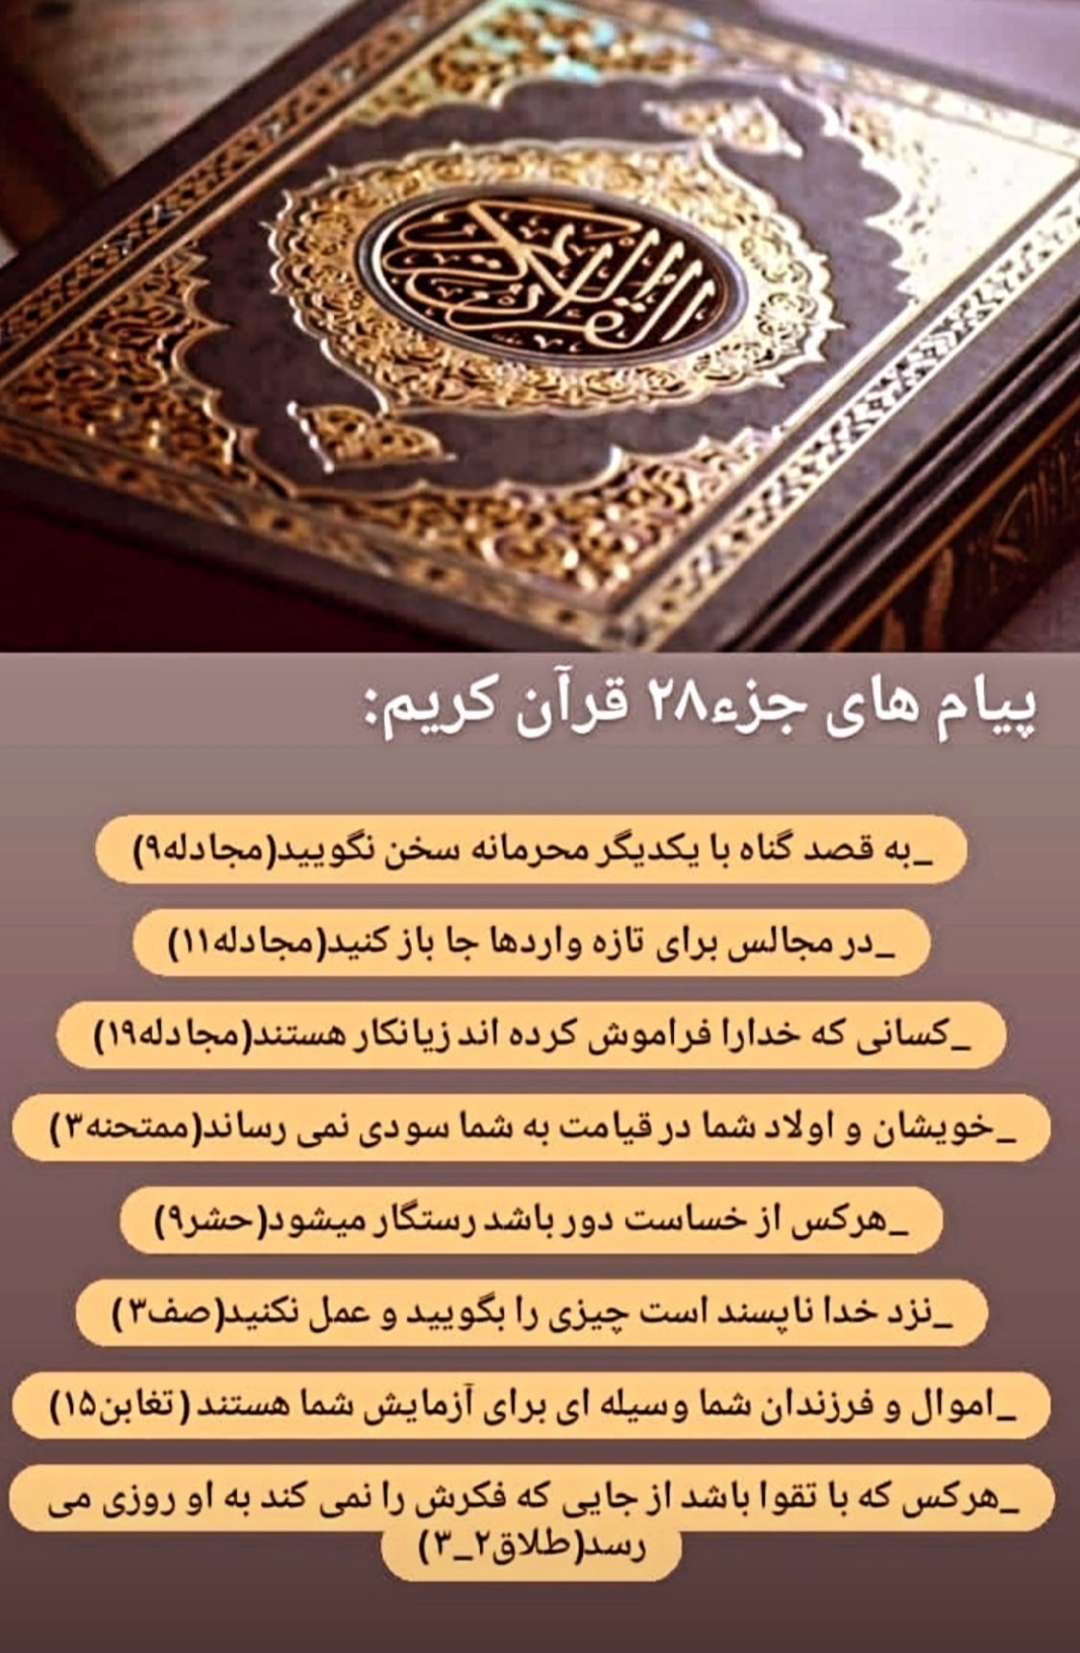 القرآن الكريم
پیام های جزء۲۸ قرآن کریم:
_به قصد گناه با یکدیگر محرمانه سخن نگویید(مجادله۹)
_در مجالس برای تازه واردها جا باز کنید(مجادله۱۱)
_کسانی که خدارا فراموش کرده اند زیانکار هستند(مجادله۱۹)
_خویشان و اولاد شما در قیامت به شما سودی نمی رساند(ممتحنه۳)
_هرکس از خساست دور باشد رستگار میشود(حشر۹)
_نزد خدا ناپسند است چیزی را بگویید و عمل نکنید(صف۳)
_اموال و فرزندان شما وسیله ای برای آزمایش شما هستند(تغابن۱۵)
_هرکس که با تقوا باشد از جایی که فکرش را نمی کند به او روزی می
رسد(طلاق۲_۳)